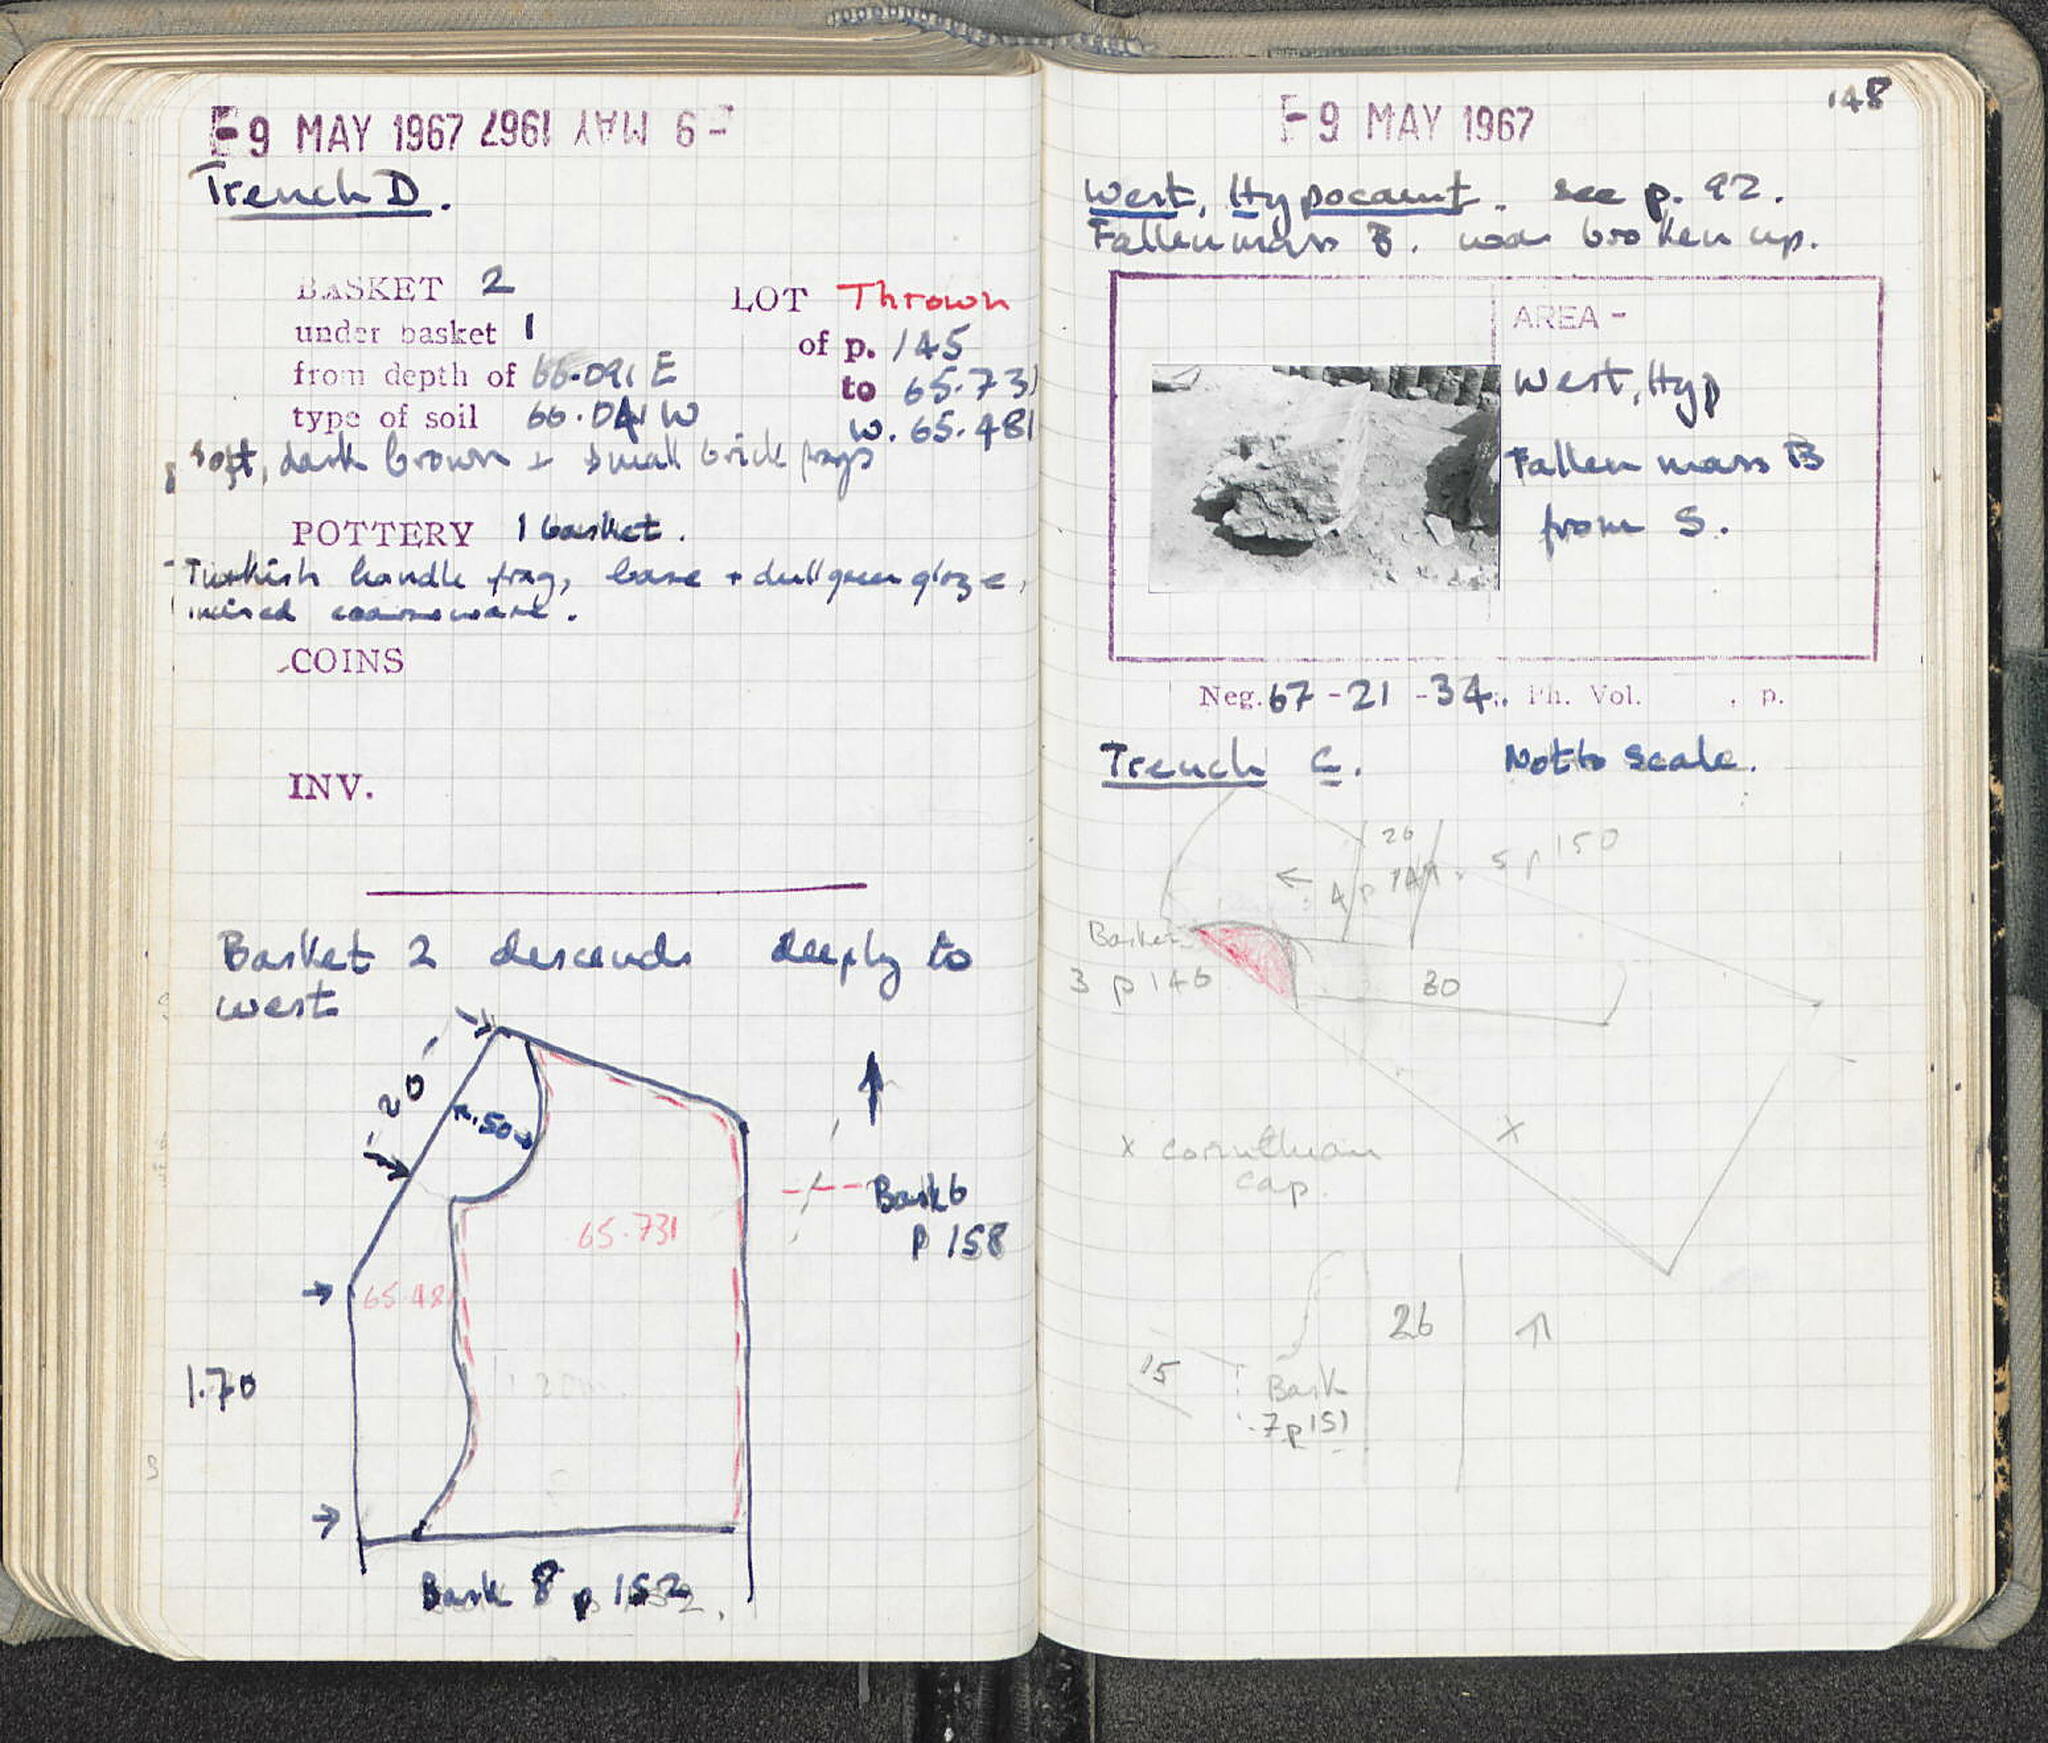 -9 MAY 1967 -9 MAY 1967
Trench D.
BASKET 2
under basket 1
from depth of 66.091 E
type of soil 66.041 W
LOT Thrown
of p. 145
to 65.731
w. 65.481
soft, dark brown + small brick frags
POTTERY 1 basket.
Turkish handle frag, base + dull green glaze,
incised coarseware.
COINS
INV.
Basket 2 descends deeply to
west
.20
.50
65.731
65.481
1.70
Bask 6
p 158
Bask 8 p 152
148
-9 MAY 1967
West, Hypocaust. see p. 92.
Fallen mass B. was broken up.
AREA -
West, Hyp
Fallen mass B
from S.
Neg. 67 - 21 - 34. Ph. Vol. , p.
Trench C. Not to scale.
26
4 p 149
5 p 150
Basket
3 p 146
30
x
x corinthian
cap.
26
15
Bask
7 p 151